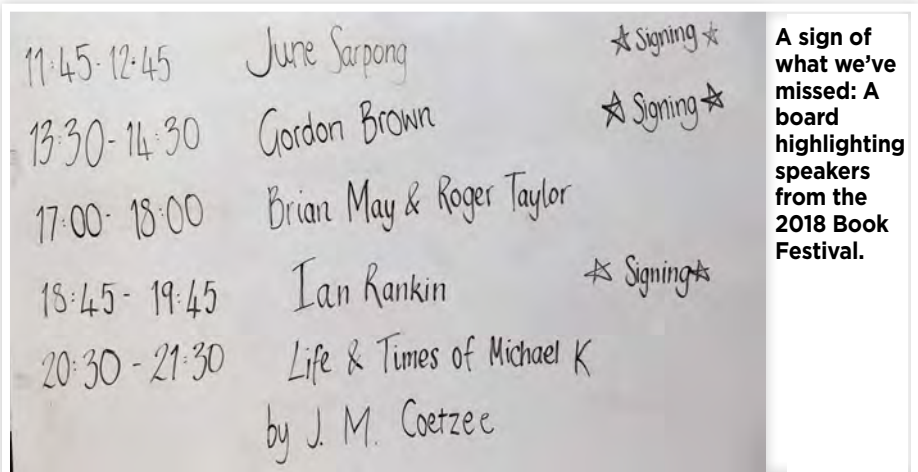 11:45-12:45 June Sarpong ☆ Signing ☆
13:30-14:30 Gordon Brown ☆ Signing ☆
17:00-18:00 Brian May & Roger Taylor
18:45-19:45 Ian Rankin ☆ Signing ☆
20:30-21:30 Life & Times of Michael K
by J. M. Coetzee
A sign of
what we’ve
missed: A
board
highlighting
speakers
from the
2018 Book
Festival.